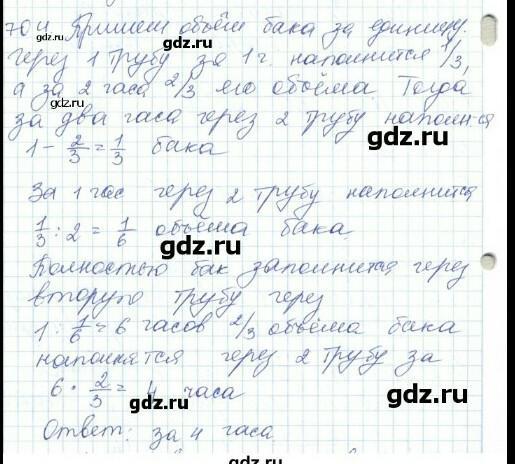 704 Примем объём бака за единицу.
Через 1 трубу за 1 г. наполнится 1/3,
а за 2 часа 2/3 его объёма. Тогда
за два часа через 2 трубу наполнится
1 - 2/3 = 1/3 бака
gdz.ru
За 1 час через 2 трубу наполнится
1/3 : 2 = 1/6 объёма бака.
gdz.ru
Полностью бак заполнится через
вторую трубу через
gdz.ru
1 : 1/6 = 6 часов 2/3 объёма бака
наполнятся через 2 трубу за
6 · 2/3 = 4 часа
gdz.ru
Ответ: за 4 часа
gdz.ru